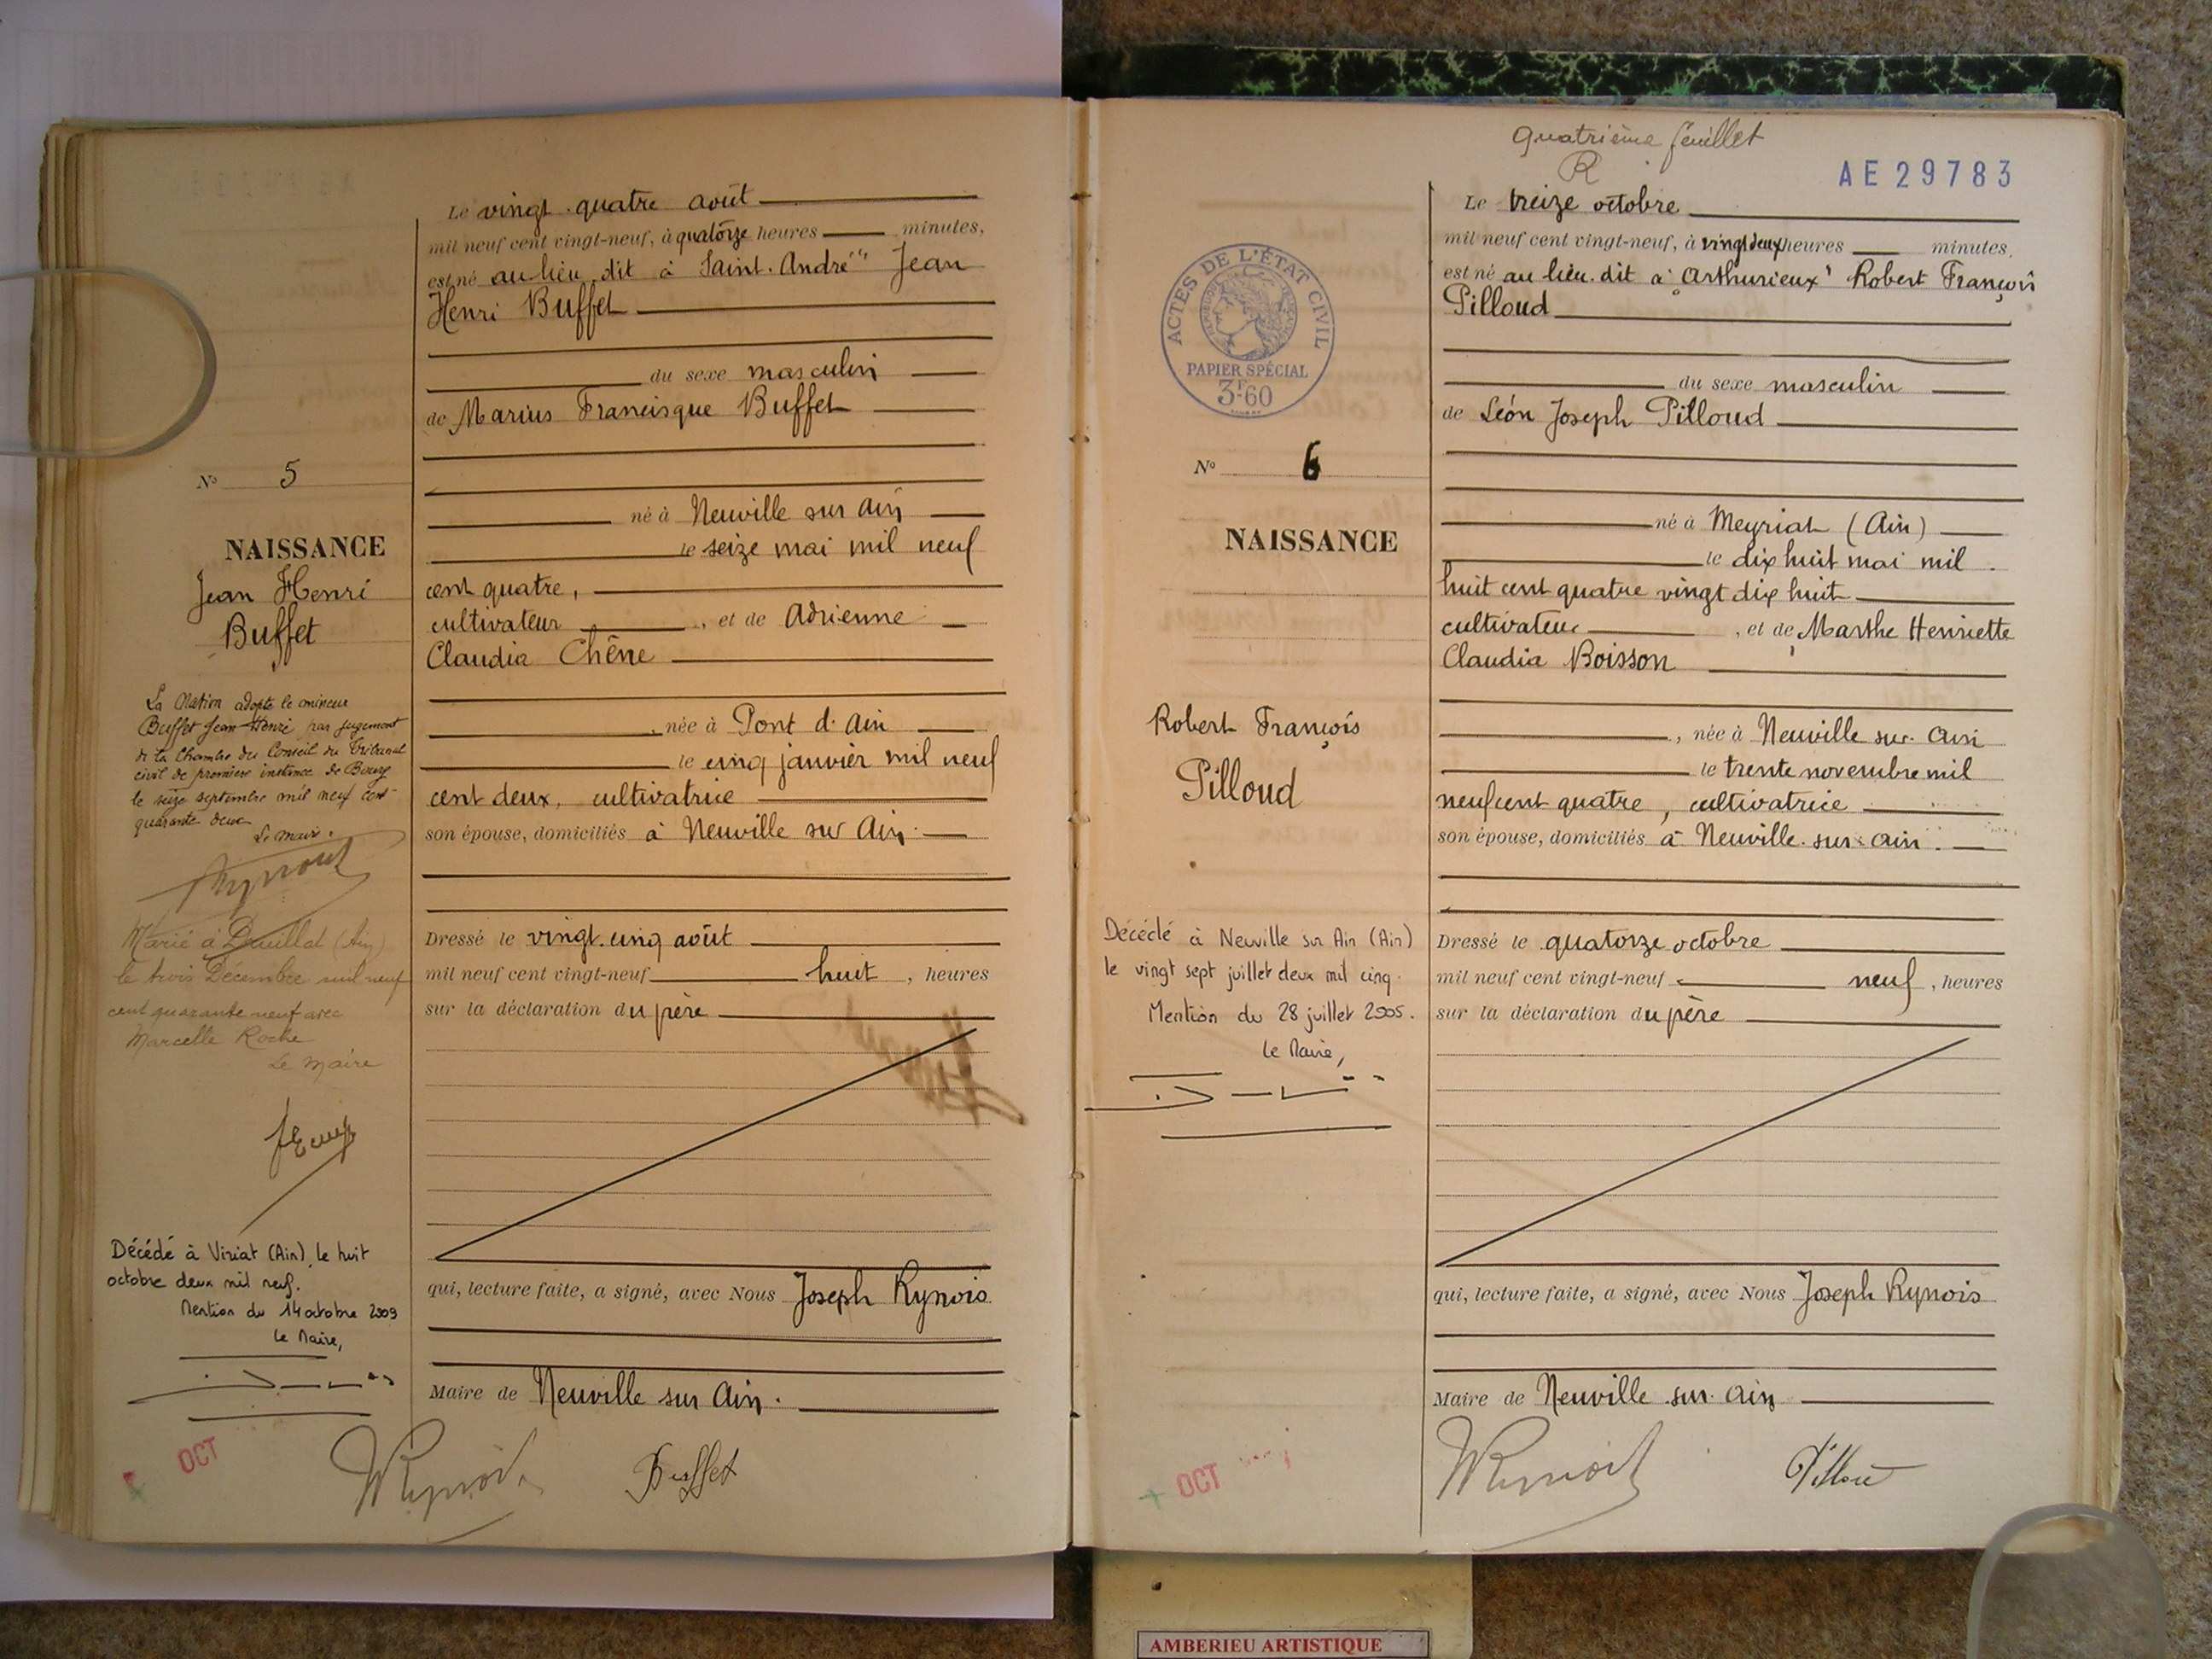 Le vingt-quatre août
mil neuf cent vingt-neuf, à quatorze heures minutes,
est né au lieu dit à Saint-André" Jean
Henri Buffet
du sexe masculin
de Marius Francisque Buffet
N° 5
né à Neuville sur Ain
NAISSANCE
le seize mai mil neuf
Jean Henri
Buffet
cent quatre,
cultivateur , et de Adrienne
Claudia Chêne
La Nation adopte le mineur
Buffet Jean Henri par jugement
de la Chambre du Conseil du Tribunal
civil de première instance de Bourg
le seize septembre mil neuf cent
quarante deux
Le maire.
, née à Pont d'Ain
le cinq janvier mil neuf
cent deux, cultivatrice
son épouse, domiciliés à Neuville sur Ain.
Marié à Druillat (Ain)
le trois Décembre mil neuf
cent quarante neuf avec
Marcelle Roche
Le Maire
Dressé le vingt-cinq août
mil neuf cent vingt-neuf huit , heures
sur la déclaration du père
Décédé à Viriat (Ain), le huit
octobre deux mil neuf.
Mention du 14 octobre 2009
Le Maire,
qui, lecture faite, a signé, avec Nous Joseph Rynois
Maire de Neuville sur Ain.
OCT
Buffet
quatrième feuillet
R
AE 29783
ACTES DE L'ÉTAT CIVIL
PAPIER SPÉCIAL
3F60
Le treize octobre
mil neuf cent vingt-neuf, à vingt deux heures minutes,
est né au lieu-dit à "Arthurieux" Robert François
Pilloud
du sexe masculin
de Léon Joseph Pilloud
N° 6
NAISSANCE
né à Meyriat (Ain)
le dix huit mai mil
huit cent quatre vingt dix huit
cultivateur , et de Marthe Henriette
Claudia Boisson
Robert François
Pilloud
, née à Neuville sur Ain
le trente novembre mil
neuf cent quatre, cultivatrice
son épouse, domiciliés à Neuville-sur-Ain.
Décédé à Neuville sur Ain (Ain)
le vingt sept juillet deux mil cinq.
Mention du 28 juillet 2005.
Le Maire,
Dressé le quatorze octobre
mil neuf cent vingt-neuf neuf , heures
sur la déclaration du père
qui, lecture faite, a signé, avec Nous Joseph Rynois
Maire de Neuville-sur-Ain
OCT
AMBERIEU ARTISTIQUE